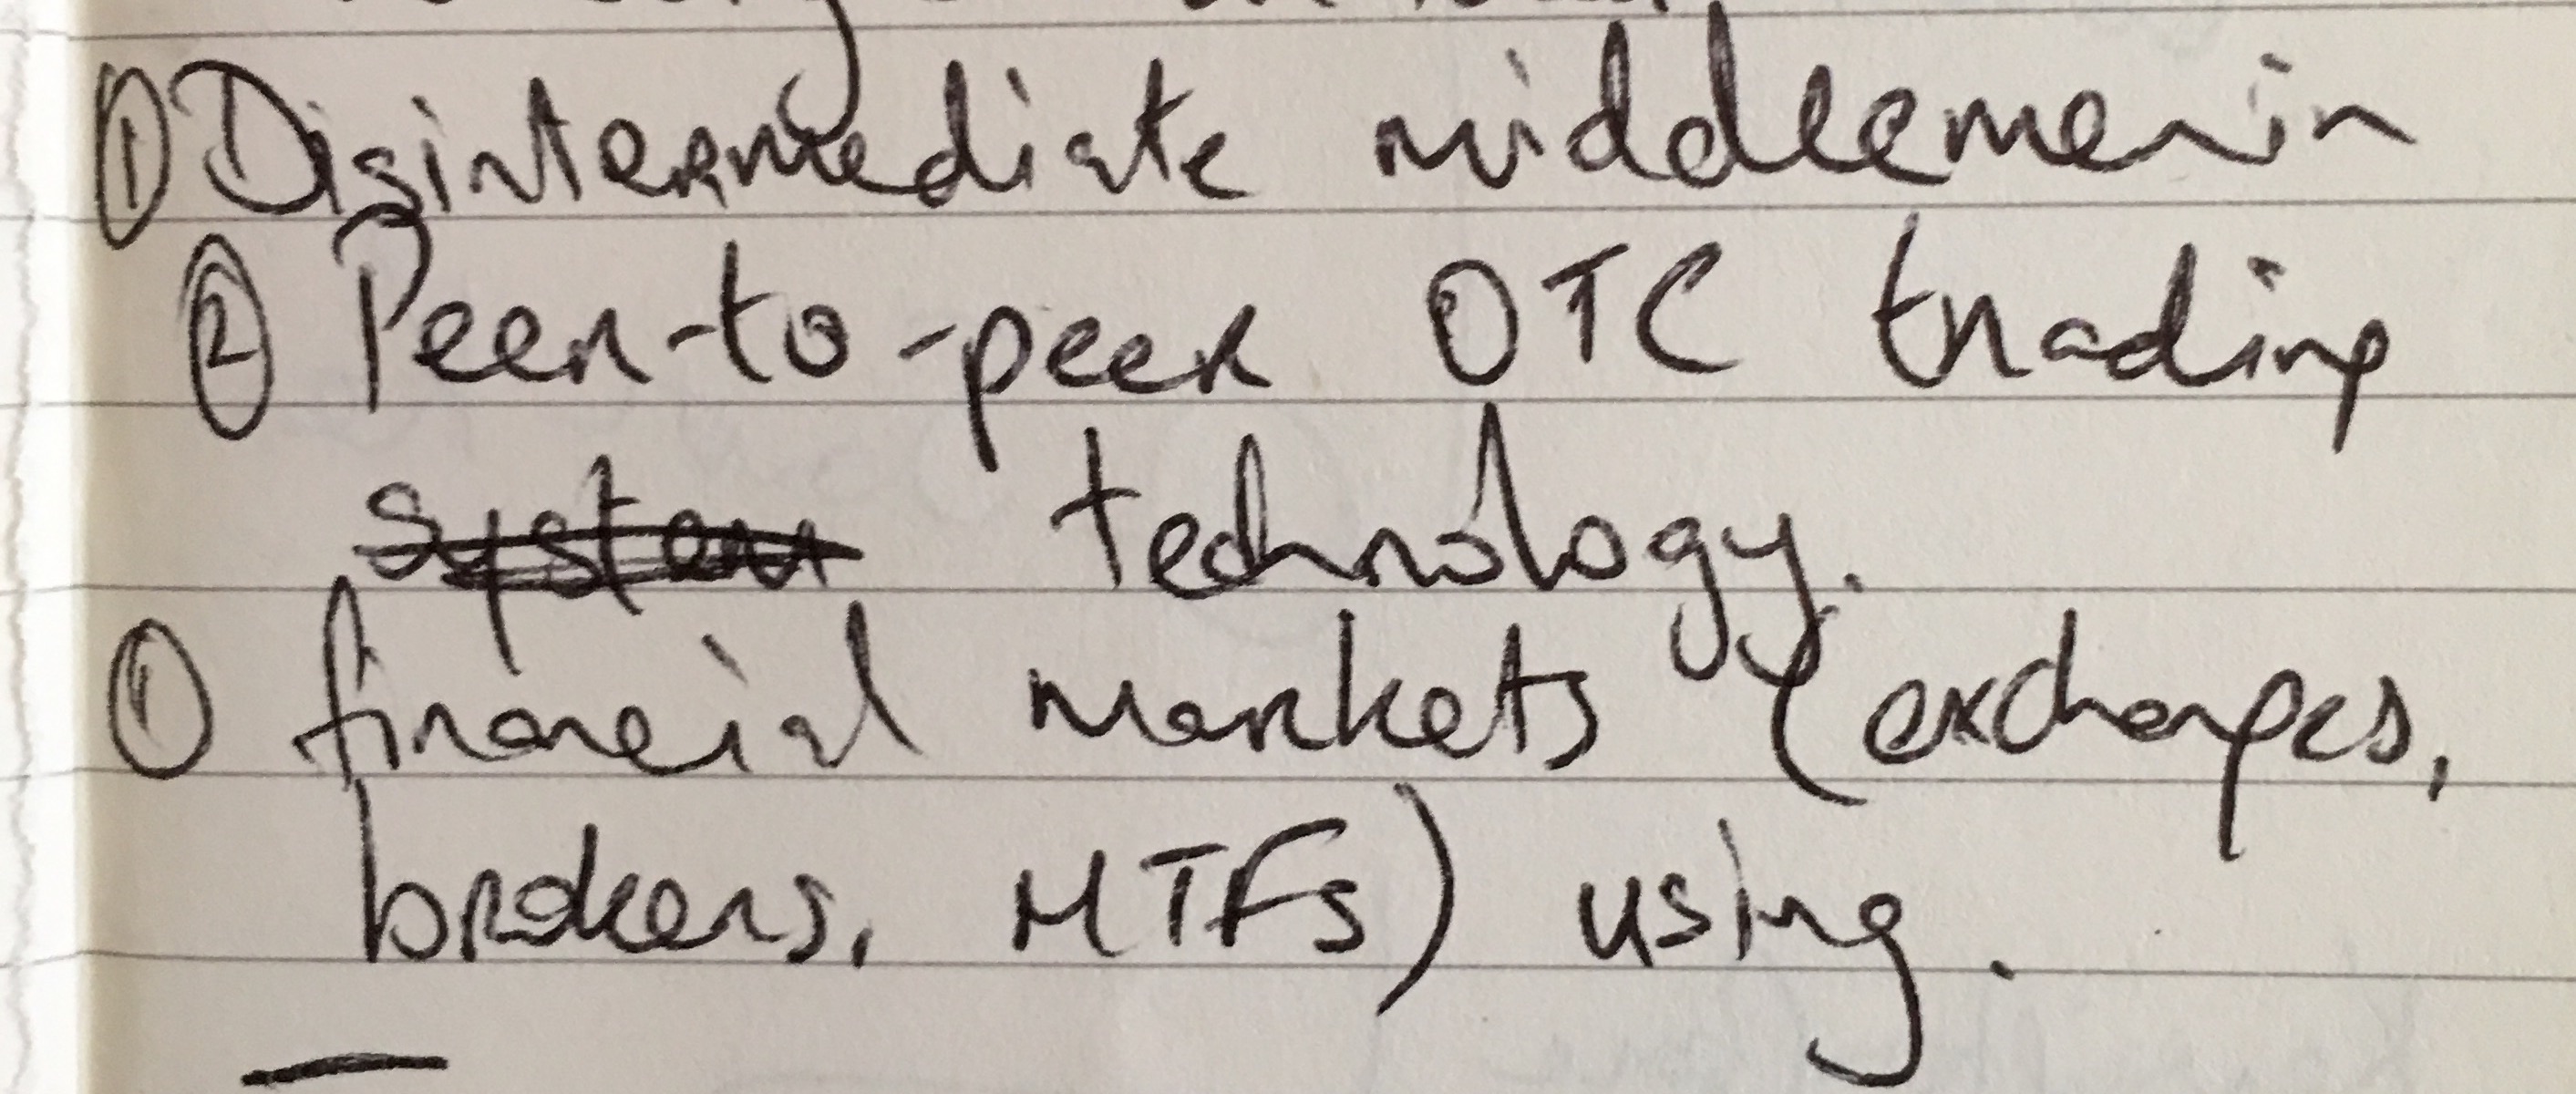 ① Disintermediate middlemen in
② Peer-to-peer OTC trading
system technology.
① financial markets (exchanges,
brokers, MTFs) using.
—